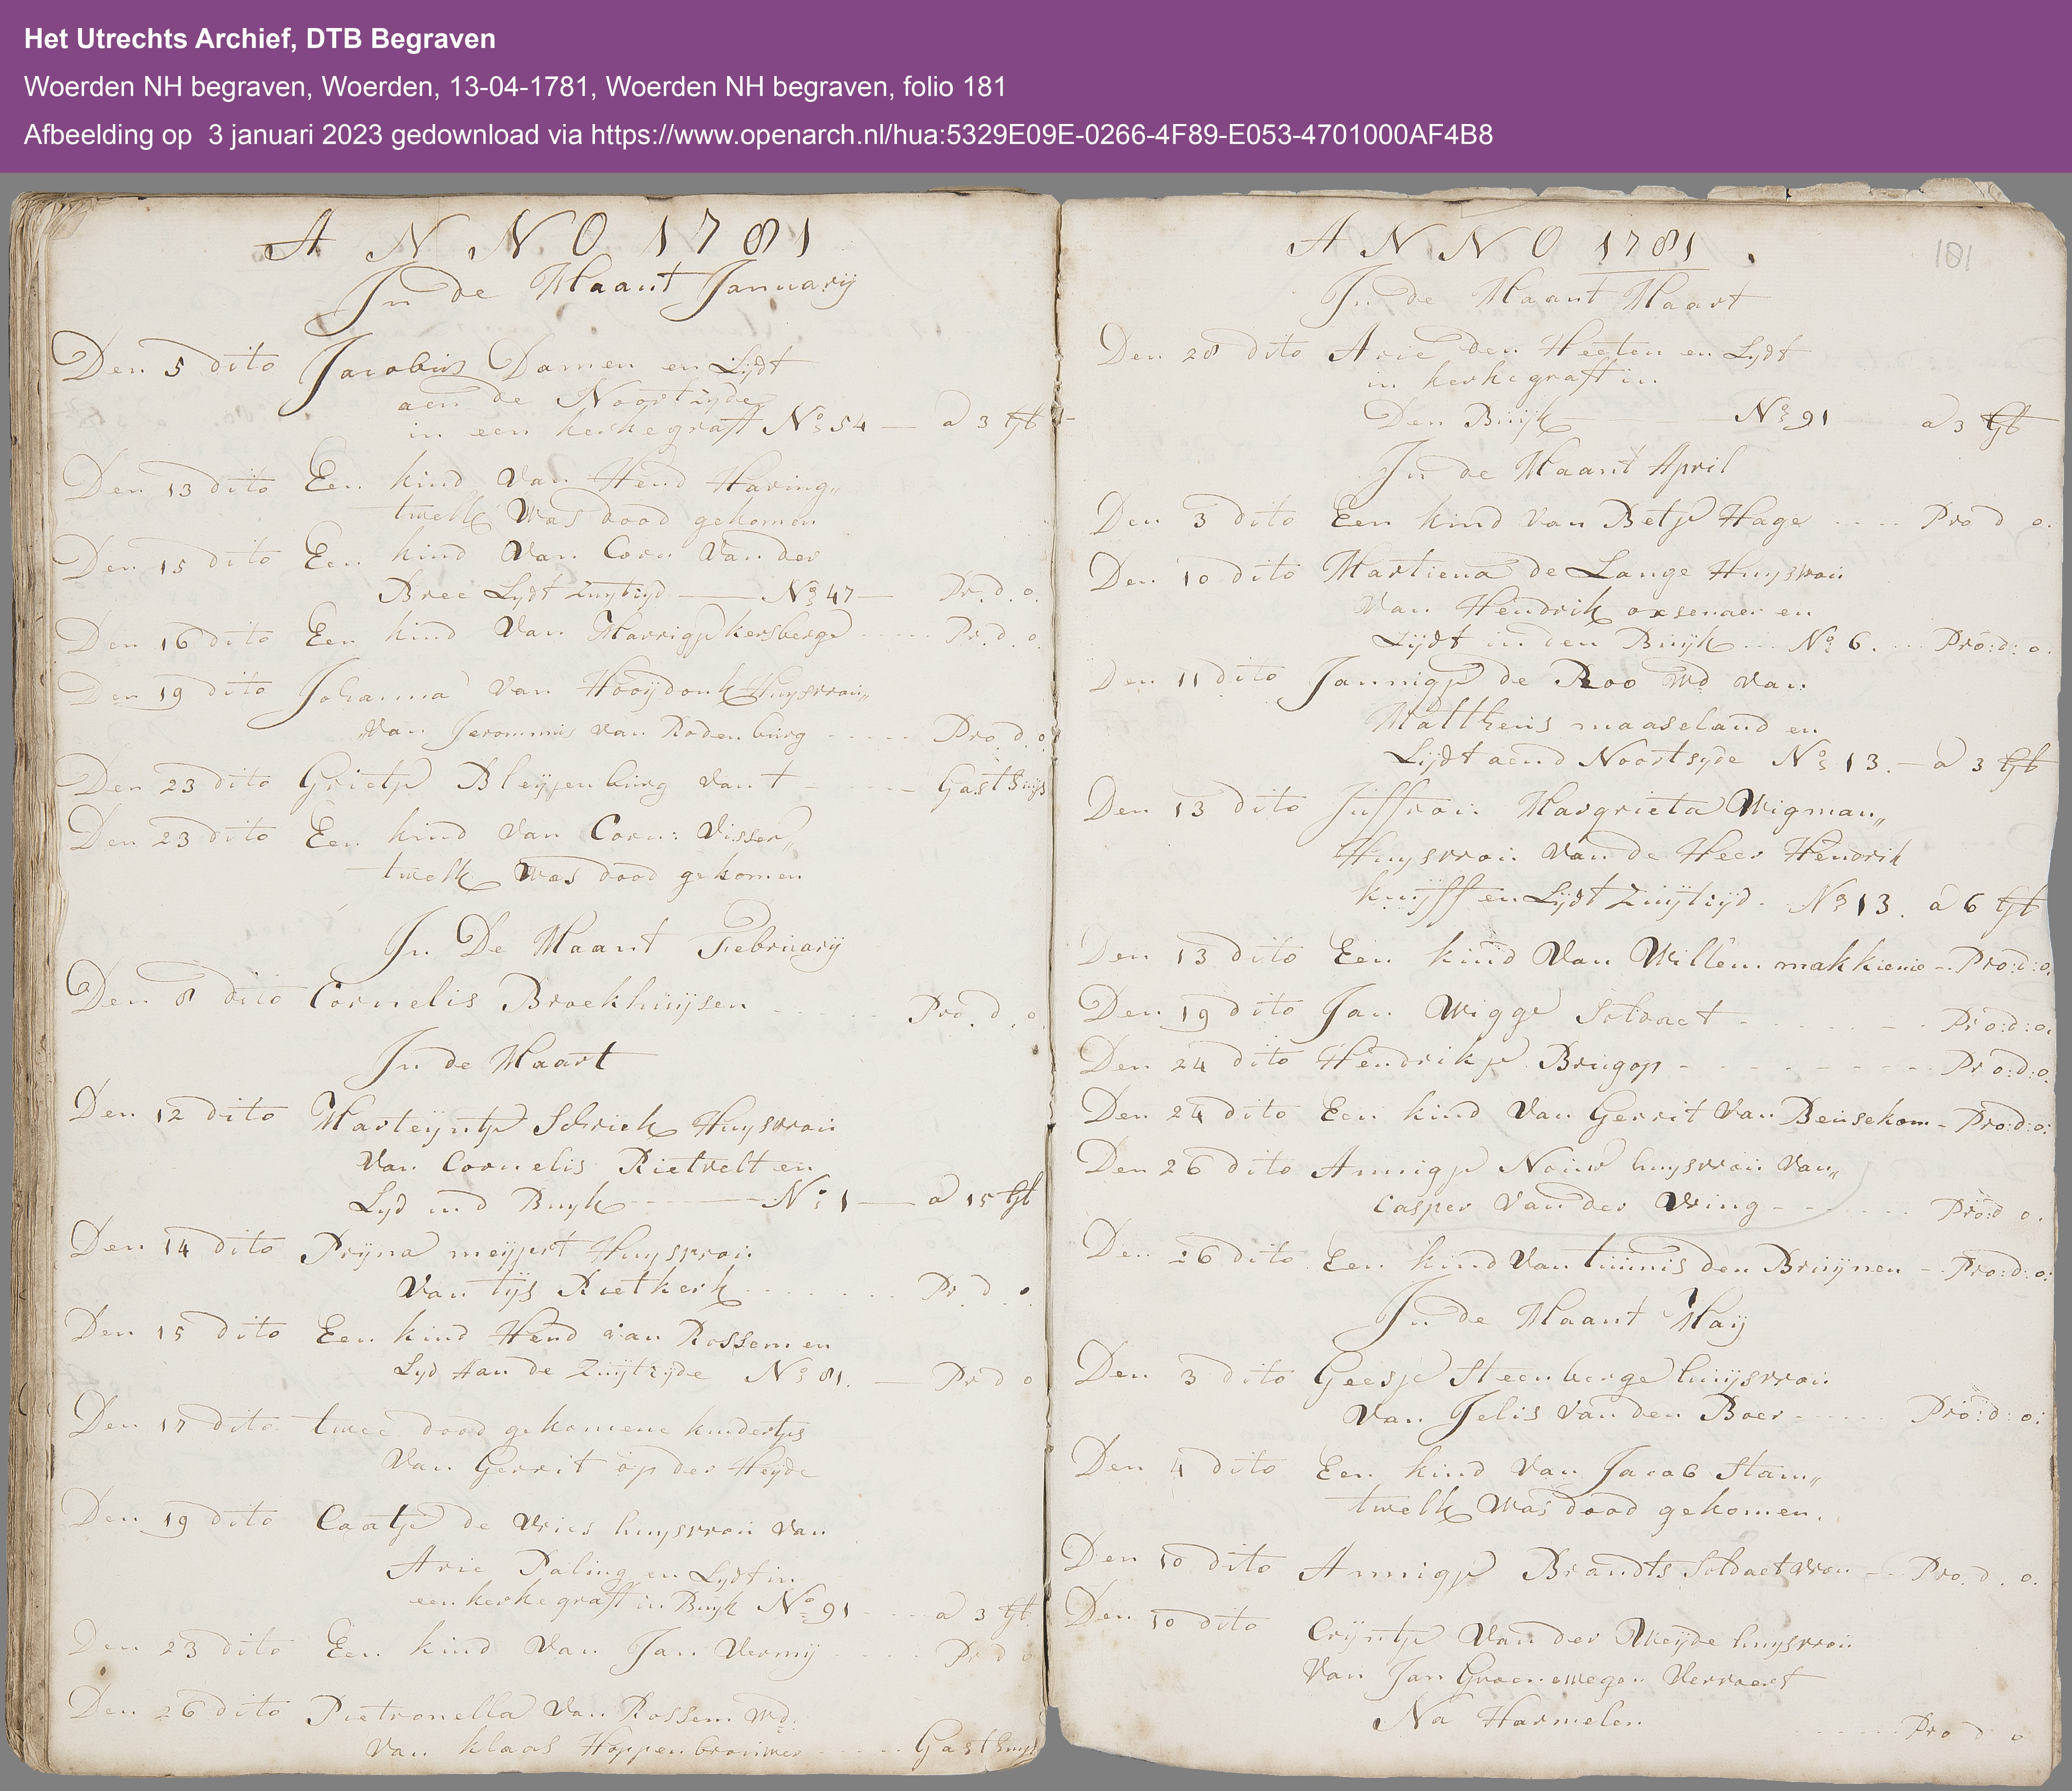 Het Utrechts Archief, DTB Begraven
Woerden NH begraven, Woerden, 13-04-1781, Woerden NH begraven, folio 181
Afbeelding op 3 januari 2023 gedownload via https://www.openarch.nl/hua:5329E09E-0266-4F89-E053-4701000AF4B8
ANNO 1781
In de Maant Januarij
Den 5 dito Jacobus Damen en Lijdt
aen de Noortzyde
in een kerkegraft No 54 — a 3 gl
Den 13 dito Een kind Van Hend Haring„
twelk Was dood gekomen
Den 15 dito Een kind Van Corn Van der
Bree Lydt Zuytzyd — No 47 — Pr. d. o.
Den 16 dito Een kind Van Marrigje kersberge ..... Pr. d. o.
Den 19 dito Johanna Van Hooijdonk Huysvrou„
Van Jerommis van Rodenburg ..... Pro. d. o.
Den 23 dito Grietje Bleijenburg Van t ..... Gasthuys
Den 23 dito Een kind Van Corn: Visser„
twelk Was dood gekomen
In De Maant Februarij
Den 8 dito Cornelis Broekhuijsen ..... Pro. d. o.
In de Maart
Den 12 dito Marteijntje Schrick Huysvrou
Van Cornelis Rietvelt en
Lyd ind Buyk ..... No 1 — a 15 gl
Den 14 dito Prijna meijert Huysvrou
Van tijs Rietkerk ..... Pr. d. o.
Den 15 dito Een kind Hend van Rossem en
Lyd Aan de Zuijtzijde No 81. — Pr d o
Den 17 dito twee dood gekomene kindertjes
Van Gerrit op der Heijde
Den 19 dito Caatje de Vries huysvrou Van
Arie Paling en Lydt in
een kerkegraft in Buyk No 91 ..... a 3 gl
Den 23 dito Een kind Van Jan Vermij ..... Pr d o
Den 26 dito Pietronella Van Rossem Wd:
Van klaas Hoppenbrouwer ..... Gasthuys
ANNO 1781.
181
In de Maant Maart
Den 28 dito Arie den Heeten en Lydt
in kerkegraft in
Den Buijk — No 91 a 3 gl
In de Maant April
Den 3 dito Een kind Van Betje Hage .... Pro d o.
Den 10 dito Martiena de Lange Huysvrou
Van Hendrik oxsenaer en
Lijdt in den Buijk ... No 6. ... Pro:d: o.
Den 11 dito Jannigje de Roo Wd Van
Mattheus maaseland en
Lijdt aend Noortsyde No 13. — a 3 gl
Den 13 dito Juffrou Margrieta Wigman„
Huysvrou Van de Heer Hendrik
knijff en Lydt Zuijtzyd. No 13. a 6 gl
Den 13 dito Een kind Van Willem makkienie - Pro:d:o.
Den 19 dito Jan Wigge Soldaet ..... Pro:d:o.
Den 24 dito Hendrikje Brugop ..... Pro:d:o.
Den 24 dito Een kind Van Gerrit Van Beusekom - Pro:d:o:
Den 26 dito Annigje Nouw huysvrou Van„
Casper Van der Wring ..... Pro:d o.
Den 26 dito Een kind Van tuinis den Bruijnen - Pro:d:o:
In de Maant Maij
Den 3 dito Geesje Steenberge huijsvrou
Van Jelis Van den Boer ..... Pro:d: o:
Den 4 dito Een kind Van Jacob Stam„
twelk Was dood gekomen.
Den 10 dito Annigje Brandts Soldaetvrou ... Pro. d. o.
Den 10 dito Crijntje Van der Weijde huysvrou
Van Jan Groenewegen Vervoert
Na Harmelen ..... Pro d o